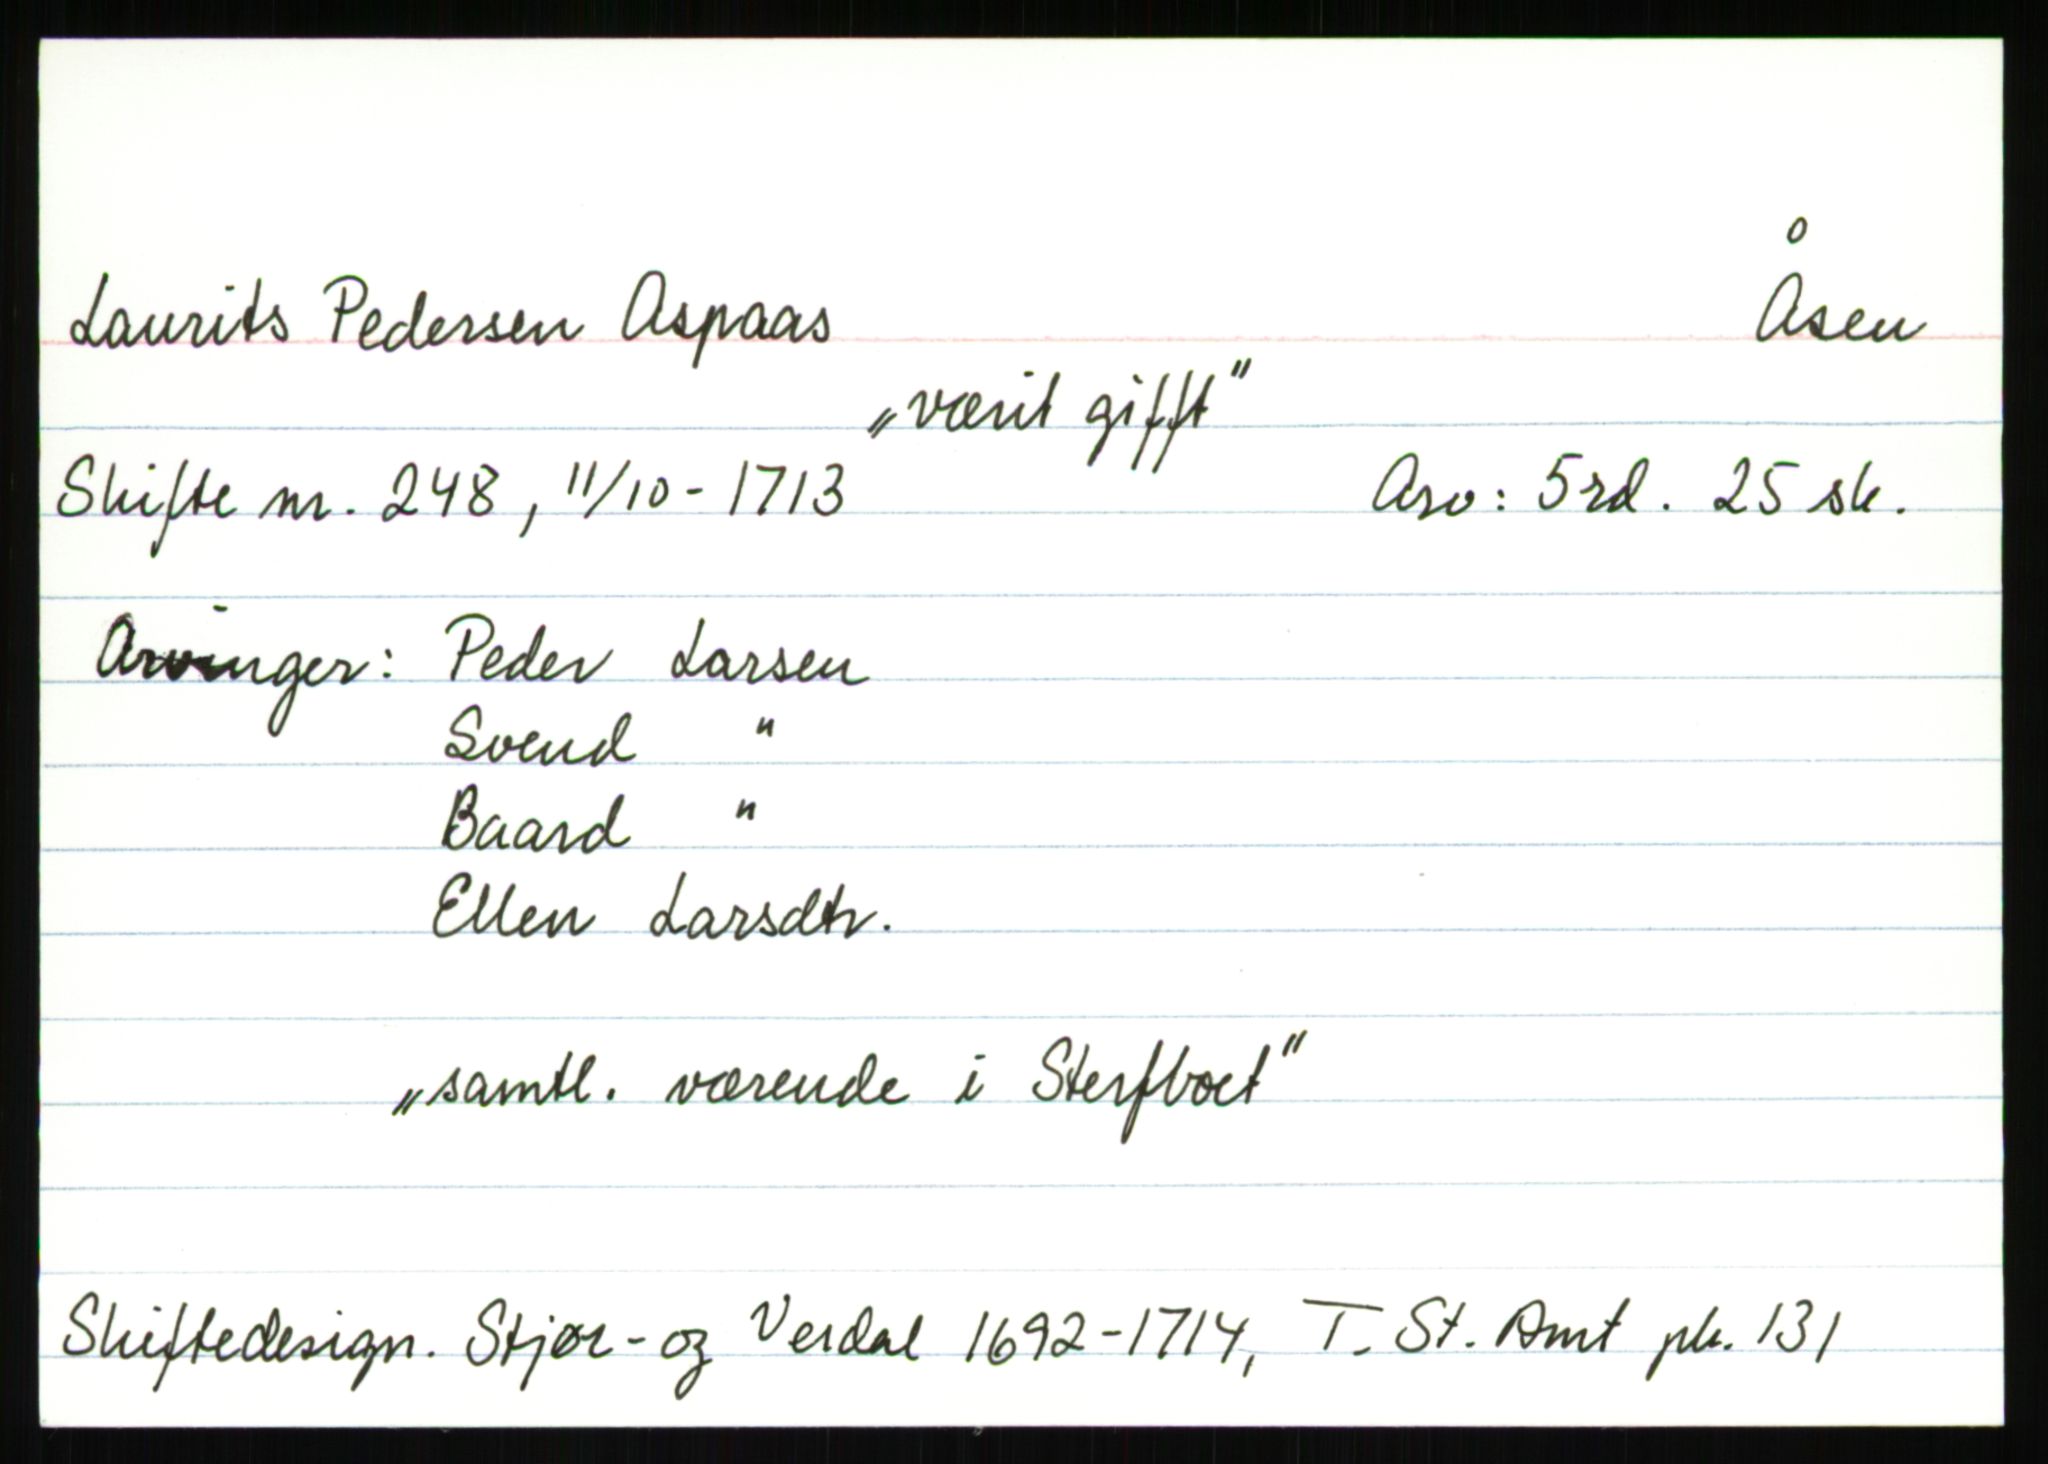 Laurits Pedersen Aspaas Åsen
„værit gifft"
Skifte nr. 248, 11/10-1713 Arv: 5 rd. 25 sk.
Arvinger: Peder Larsen
Svend "
Baard "
Ellen Larsdtr.
„samtl. værende i Sterfboet"
Skiftedesign. Stjør- og Verdal 1692-1714, T. St. Amt pk. 131